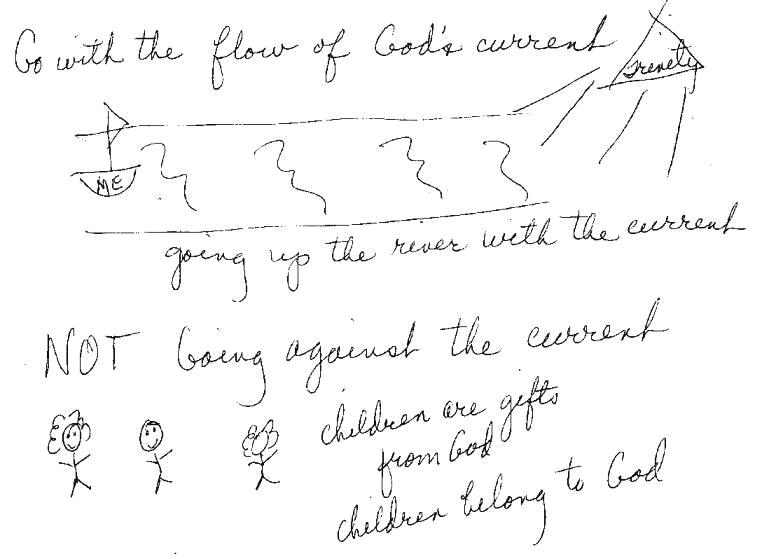 Go with the flow of God's current
Trinety
ME
going up the river with the current
NOT Going against the current
children are gifts
from God
children belong to God